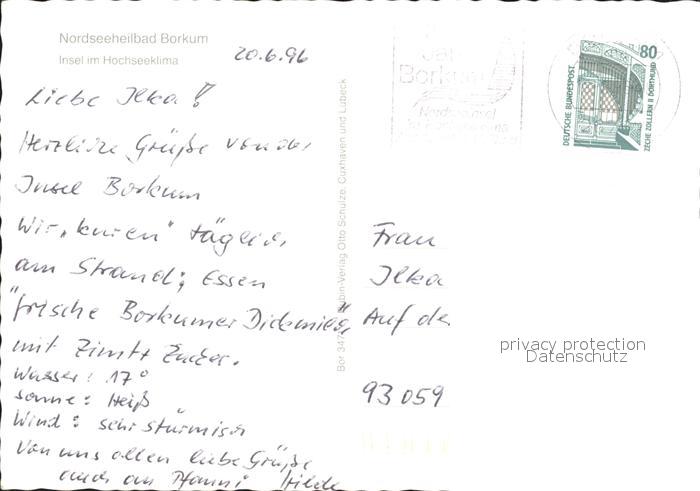 Nordseeheilbad Borkum
Insel im Hochseeklima
20.6.96
Liebe Ilka!
Herzliche Grüße von der
Insel Borkum
Wir „kuren" täglich
am Strand; Essen
"frische Borkumer Dickmilch"
mit Zimt + Zucker.
Wasser: 17°
Sonne: Heiß
Wind: sehr stürmisch
Von uns allen liebe Grüße
auch an Hilde
Bor 347 Rubin-Verlag Otto Schulze, Cuxhaven und Lübeck
Borkum
80
DEUTSCHE BUNDESPOST
ZECHE ZOLLERN II DORTMUND
Frau
Ilka
Auf der
93059
privacy protection
Datenschutz